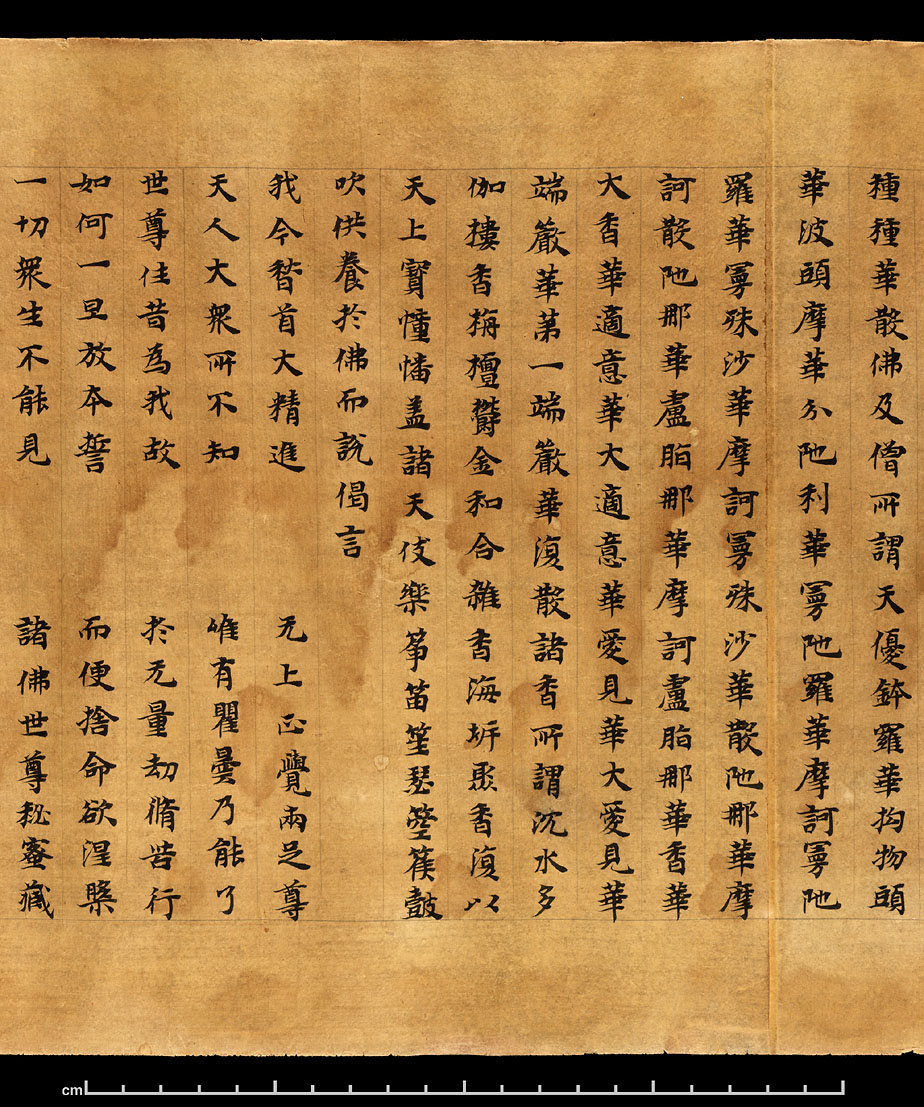 種種華散佛及僧所謂天優鉢羅華拘物頭
華波頭摩華分陁利華曼陁羅華摩訶曼陁
羅華曼殊沙華摩訶曼殊沙華散陁那華摩
訶散陁那華盧脂那華摩訶盧脂那華香華
大香華適意華大適意華愛見華大愛見華
端嚴華第一端嚴華復散諸香所謂沉水多
伽樓香栴檀欝金和合雜香海岸聚香復以
天上寶幢幡盖諸天伎樂箏笛笙瑟箜篌鼓
吹供養於佛而說偈言
我今稽首大精進 无上正覺兩足尊
天人大衆所不知 唯有瞿曇乃能了
世尊往昔為我故 於无量劫脩苦行
如何一旦放本誓 而便捨命欲涅槃
一切衆生不能見 諸佛世尊秘蜜藏
cm